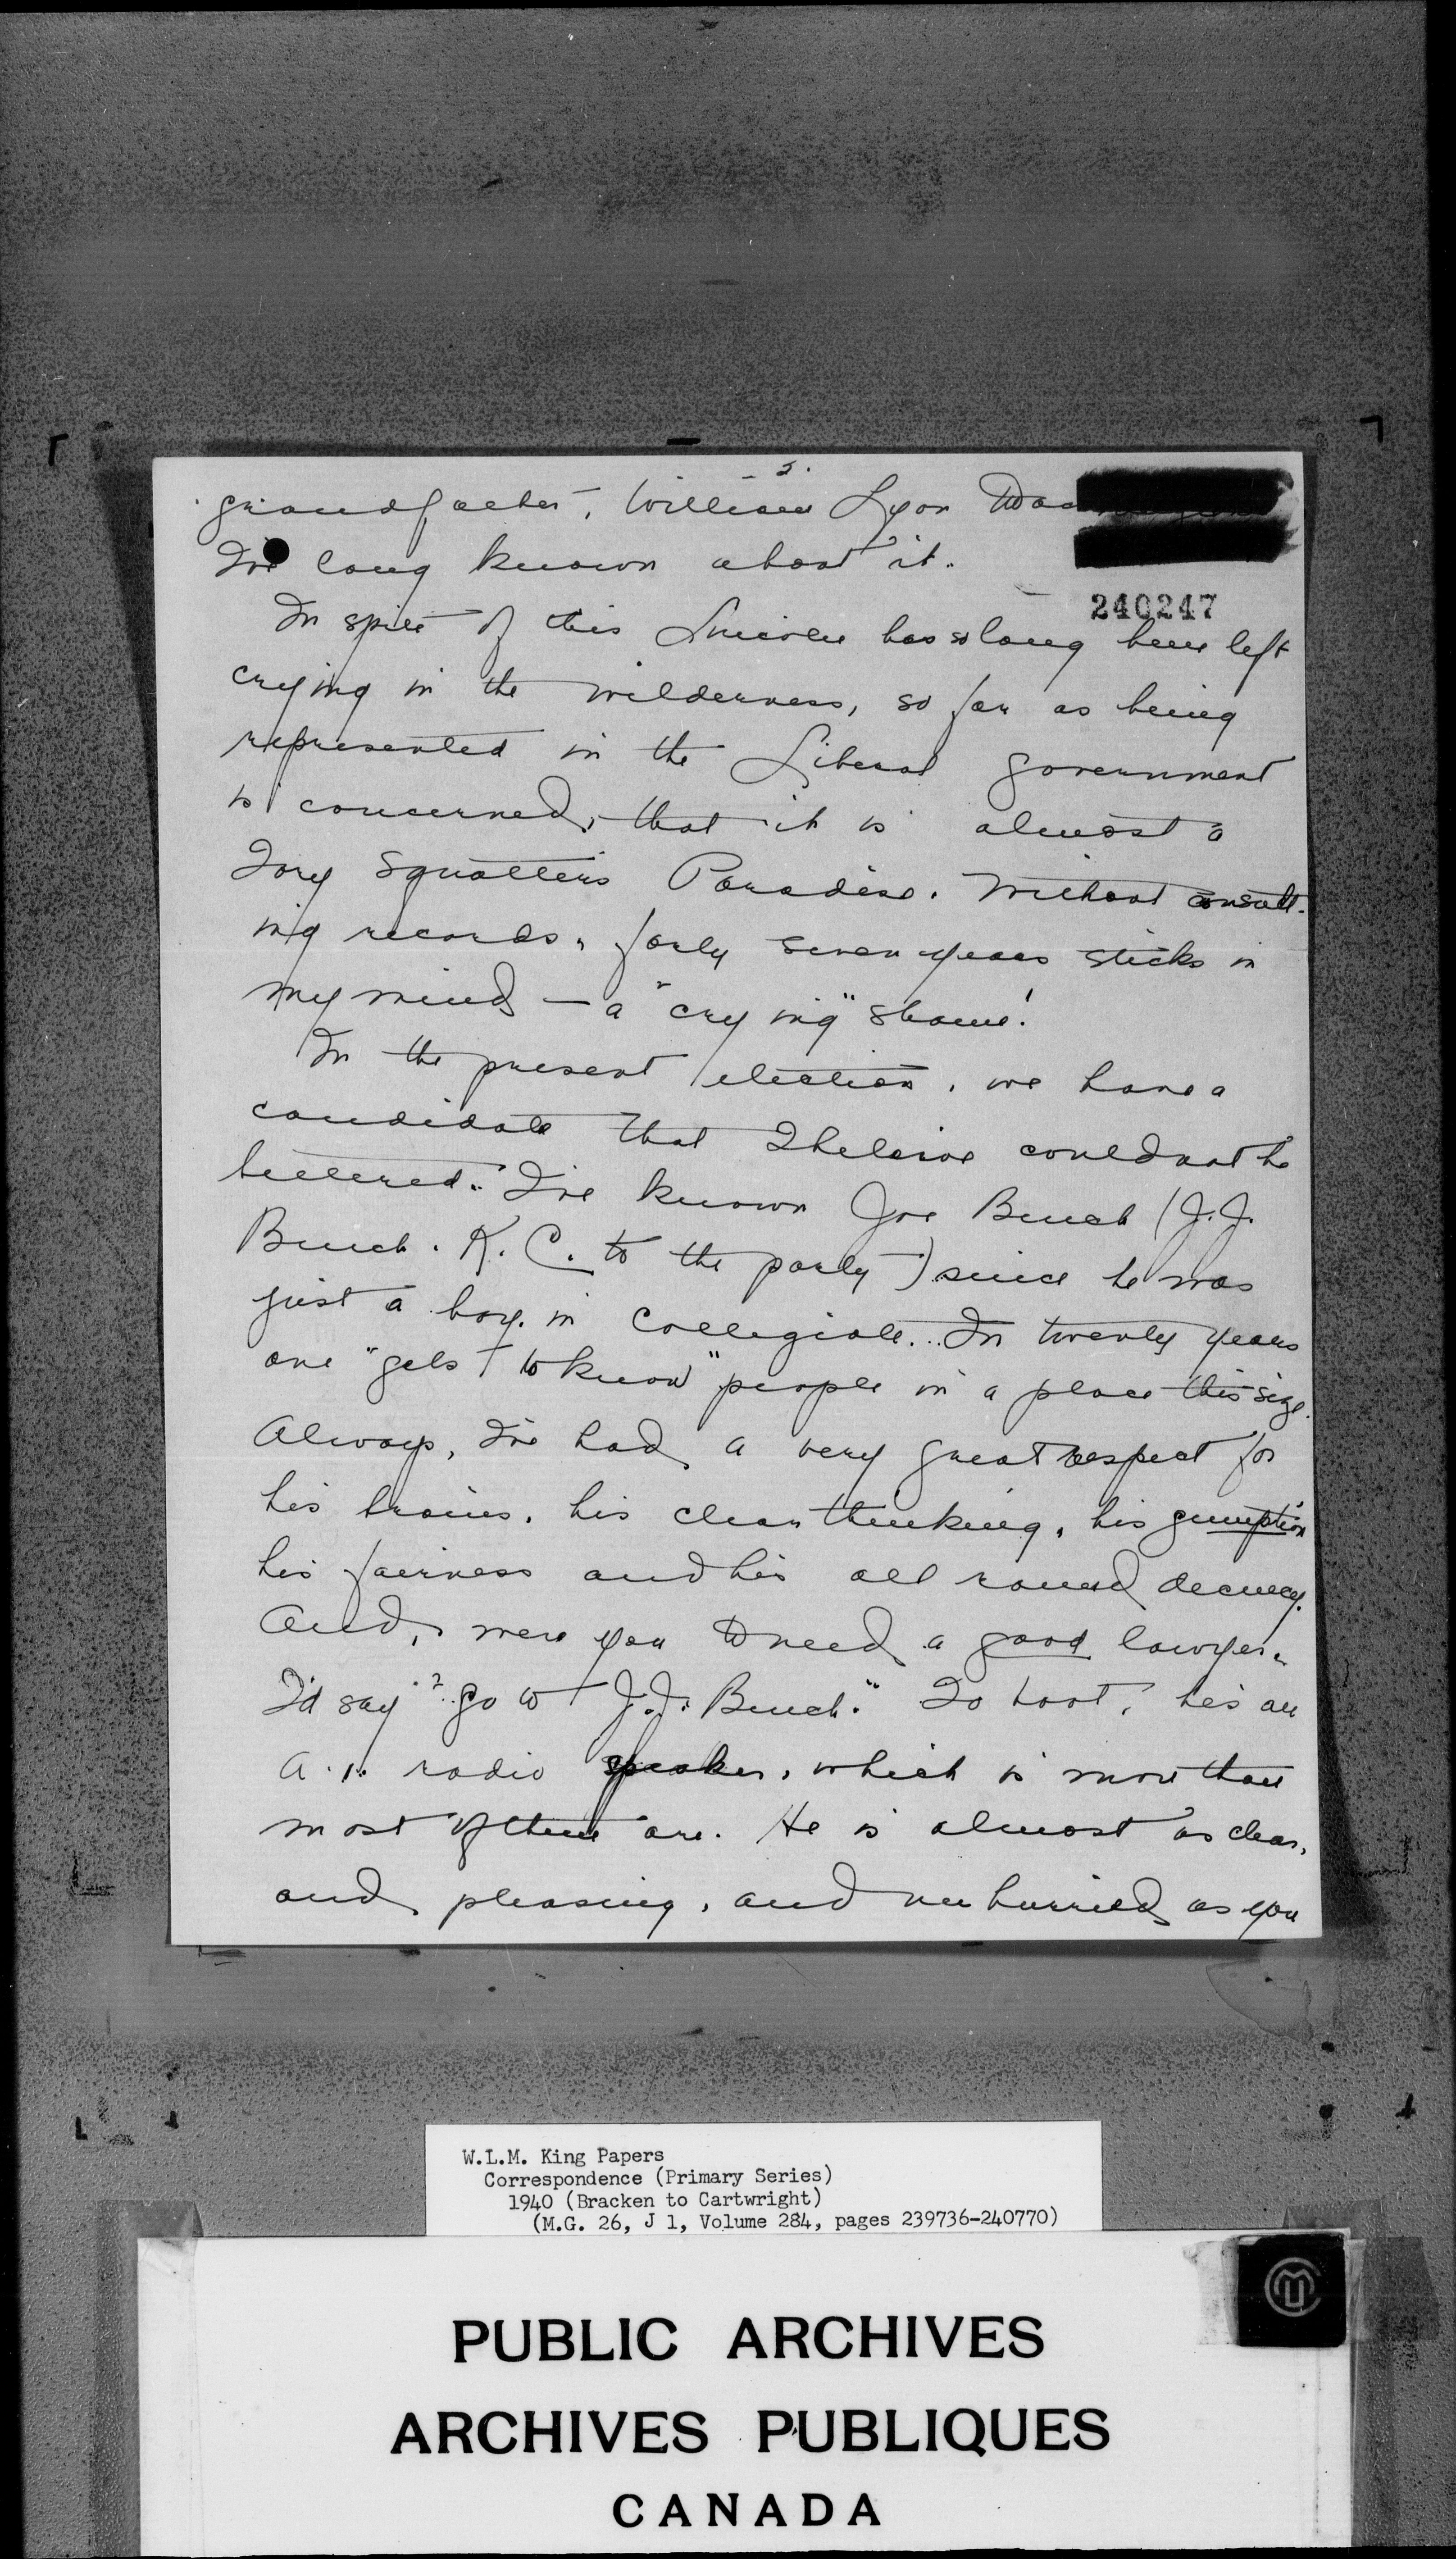 3.
grandfather, William Lyon Mac
I've long known about it.
240247
In spite of this Lincoln has so long been left
crying in the wilderness, so far as being
represented in the Liberal government
is concerned, that it is almost a
Tory Squatters Paradise. Without consult-
ing records, forty seven years sticks in
my mind — a "crying" shame!
In the present election, we have a
candidate that I believe could not be
bettered. I've known Joe Bench (J.J.
Bench. K.C. to the party) since he was
just a boy in Collegiate. In twenty years
one "gets to know" people in a place this size.
Always, I've had a very great respect for
his brains, his clear thinking, his gumption
his fairness and his all round decency.
And, were you to need a good lawyer,
I'd say "go to J.J. Bench." To boot, he's an
A.1. radio speaker, which is more than
most of them are. He is almost as clear,
and pleasing, and unhurried as you
W.L.M. King Papers
Correspondence (Primary Series)
1940 (Bracken to Cartwright)
(M.G. 26, J 1, Volume 284, pages 239736-240770)
PUBLIC ARCHIVES
ARCHIVES PUBLIQUES
CANADA